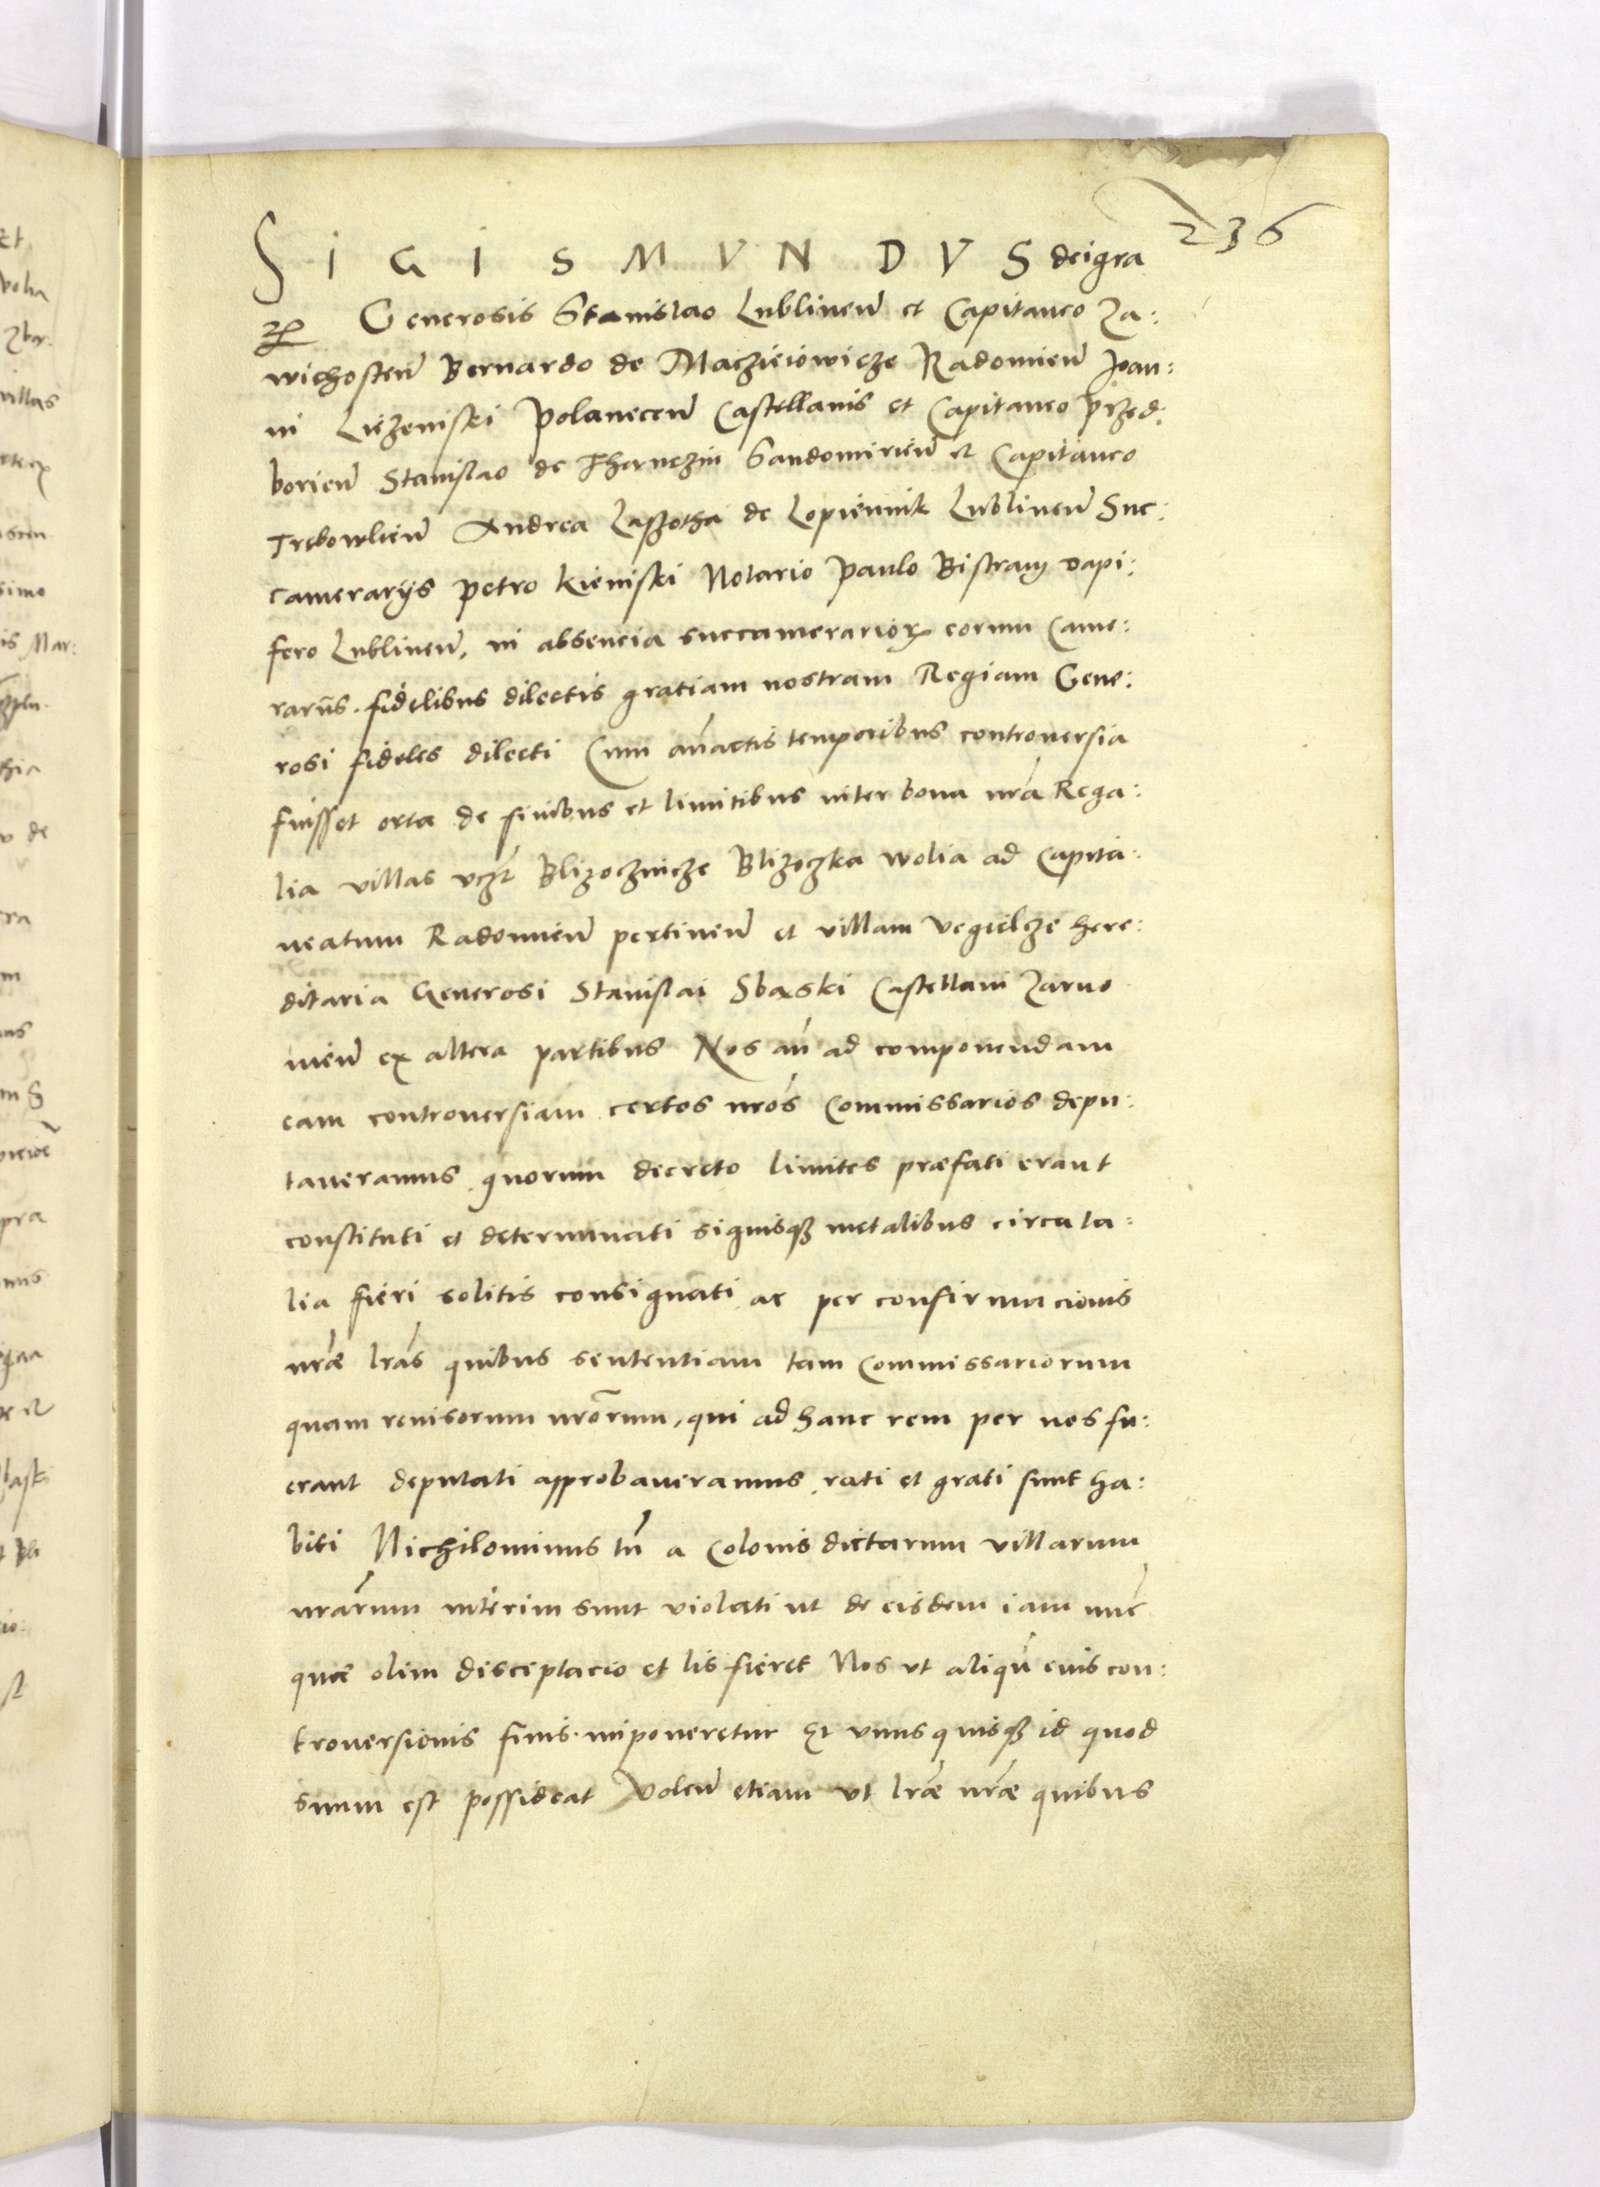 236
SIGISMVNDVS dei gra
Rx Generosis Stanislao Lublinen̄ et Capitaneo Za:
wichosten̄ Bernardo de Macziéiowicze Radomien̄ Joan:
ni Liezenski Polanecen̄ Castellanis et Capitaneo Przed:
borien̄ Stanislao de Tharnczin Sandomirien̄ et Capitaneo
Trebowlien̄ Andrea Laszotha de Lopiennik Lublinen̄ Suc:
camerarijs Petro Kieniski Notario Paulo Bistram Dapi:
fero Lublinen̄, in absencia succamerarioꝝ eorum Came:
rarijs. fidelibus dilectis gratiam nostram Regiam Gene:
rosi fideles dilecti Cum an̄actis temporibus controuersia
fuisset orta de finibus et limitibus inter bona nr̄a Rega:
lia villas vczt Blizoczinicze Blizoczka wolia ad Capita:
neatum Radomien̄ pertinen̄ et villam Vegielcze here:
ditaria Generosi Stanislai Sbąski Castellani Zarno
uien̄ ex altera partibus Nos an̄ ad componendam
eam controuersiam certos nr̄os Commissarios depu:
taueramus quorum decreto limites præfati erant
constituti et determinati signisqꝫ metalibus circa ta:
lia fieri solitis consignati ac per confirmacionis
nr̄æ lr̄as quibus sententiam tam Commissariorum
quam reuisorum nr̄orum, qui ad hanc rem per nos fu:
erant deputati approbaueramus rati et grati sunt ha:
biti Nichilominus tn̄ a Colonis dictarum villarum
nr̄arum interim sunt violati ut de eisdem iam nūc
quæ olim disceptacio et lis fieret Nos vt aliqn̄ eius con:
trouersionis finis imponeretur Et vnusquisqꝫ id quod
suum est possideat Volen̄ etiam vt lr̄æ nr̄æ quibus